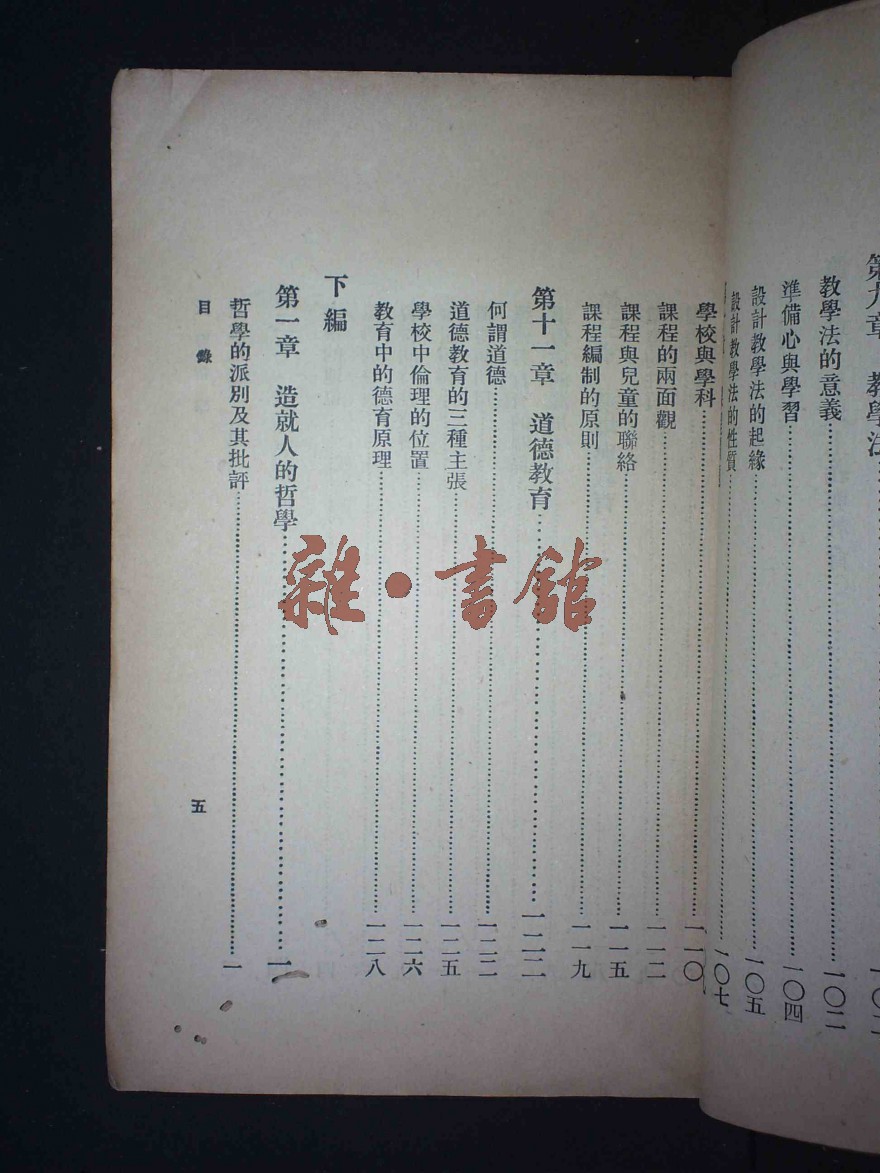 第九章 教學法……一〇二
教學法的意義……一〇二
準備心與學習……一〇四
設計教學法的起緣……一〇五
設計教學法的性質……一〇七
學校與學科……一一〇
課程的兩面觀……一一二
課程與兒童的聯絡……一一五
課程編制的原則……一一九
第十一章 道德教育……一二二
何謂道德……一二二
道德教育的三種主張……一二五
學校中倫理的位置……一二六
教育中的德育原理……一二八
下編
第一章 造就人的哲學……一
哲學的派別及其批評……一
目錄
五
雜·書館